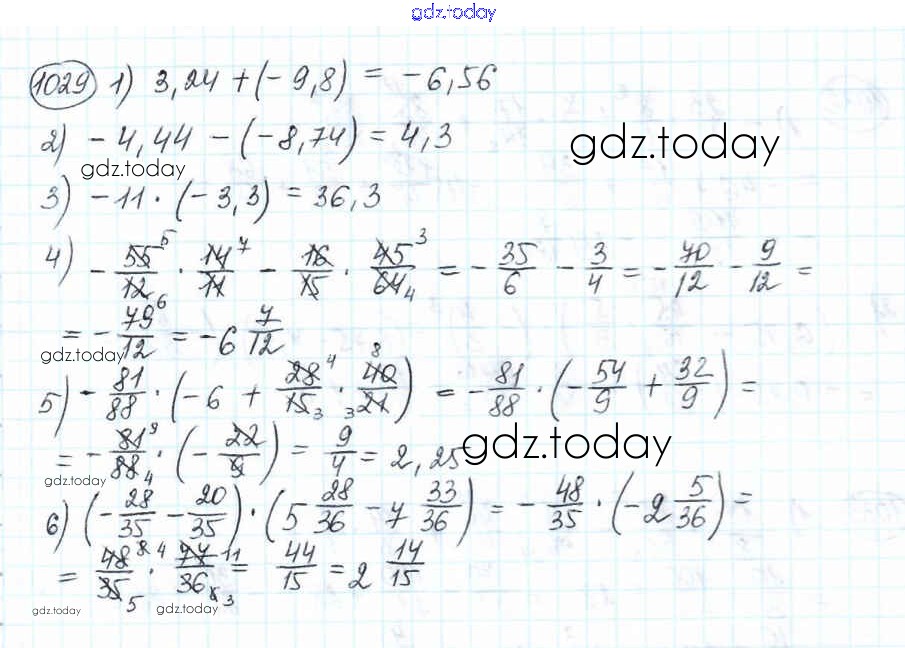 gdz.today
1029 1) 3,24 + (- 9,8) = - 6,56
2) - 4,44 - (- 8,74) = 4,3
gdz.today
gdz.today
3) - 11 · (- 3,3) = 36,3
4) - 55/12 · 14/11 - 16/15 · 45/64 = - 35/6 - 3/4 = - 70/12 - 9/12 =
= - 79/12 = - 6 7/12
gdz.today
5) - 81/88 · (- 6 + 28/15 · 40/21) = - 81/88 · (- 54/9 + 32/9) =
= - 81/88 · (- 22/9) = 9/4 = 2,25
gdz.today
gdz.today
6) (- 28/35 - 20/35) · (5 28/36 - 7 33/36) = - 48/35 · (- 2 5/36) =
= 48/35 · 77/36 = 44/15 = 2 14/15
gdz.today
gdz.today